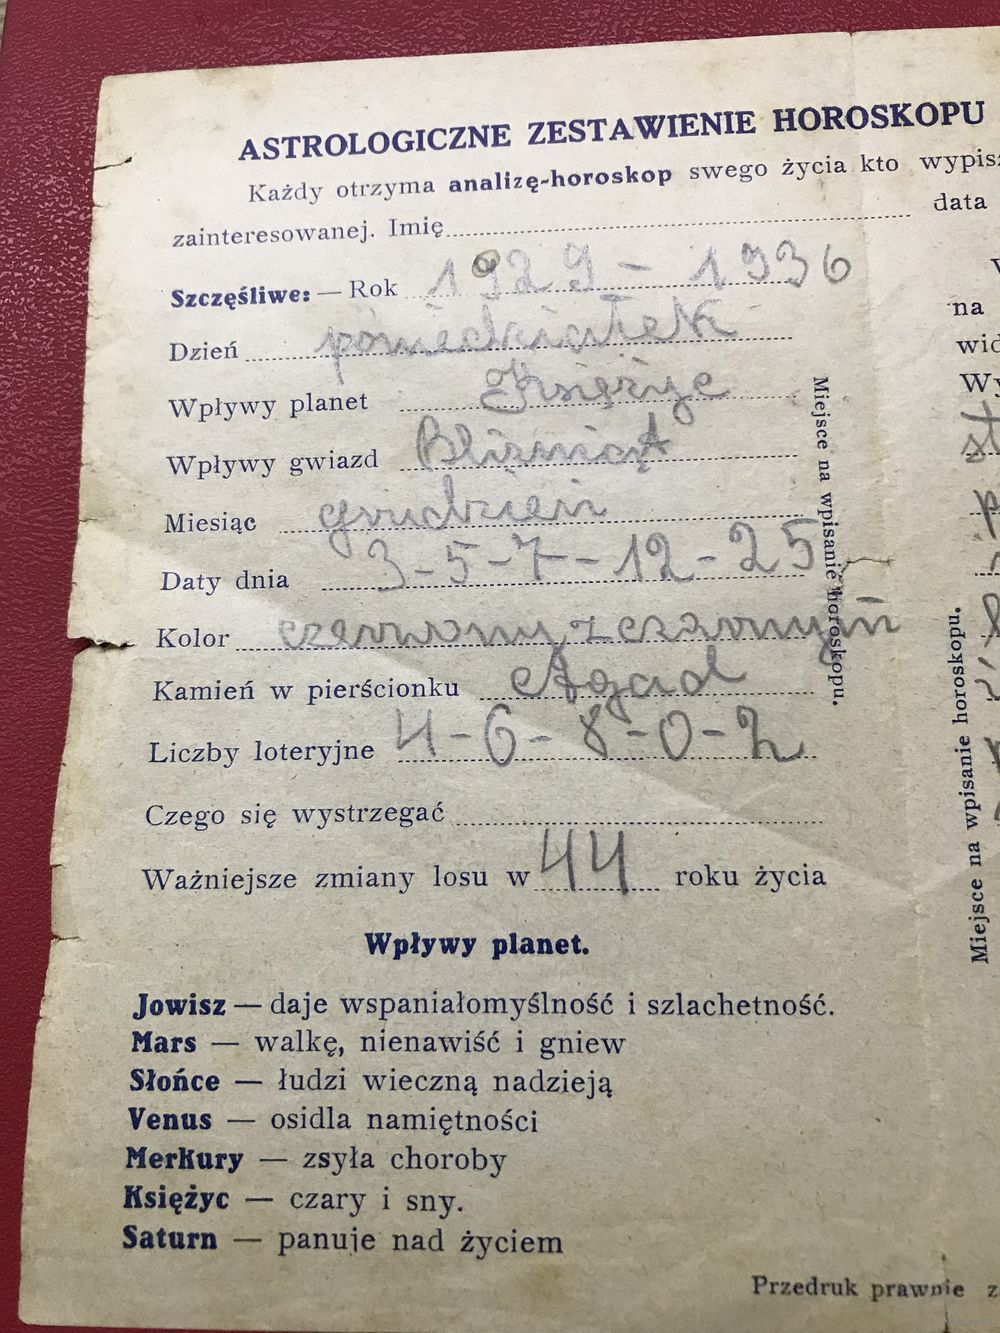 ASTROLOGICZNE ZESTAWIENIE HOROSKOPU
Każdy otrzyma analizę-horoskop swego życia kto wypisz
zainteresowanej. Imię data
Szczęśliwe: — Rok 1929 - 1936
na
Dzień poniedziałek
Wpływy planet Księżyc
Wpływy gwiazd Bliźniąt
Miesiąc grudzień
Daty dnia 3-5-7-12-25
Kolor czerwony z czarnym
Kamień w pierścionku Agad
Liczby loteryjne 4-6-8-0-2
Czego się wystrzegać
Ważniejsze zmiany losu w 44 roku życia
Miejsce na wpisanie horoskopu.
Miejsce na wpisanie horoskopu.
Wpływy planet.
Jowisz — daje wspaniałomyślność i szlachetność.
Mars — walkę, nienawiść i gniew
Słońce — łudzi wieczną nadzieją
Venus — osidla namiętności
Merkury — zsyła choroby
Księżyc — czary i sny.
Saturn — panuje nad życiem
Przedruk prawnie z